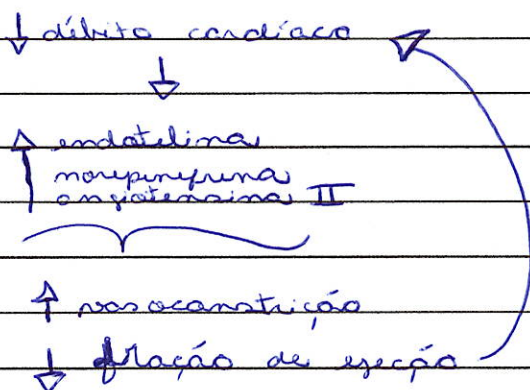 ↓ débito cardíaco
↓
↑ endotelina
norepinefrina
angiotensina II
↑ vasoconstrição
↓ fração de ejeção